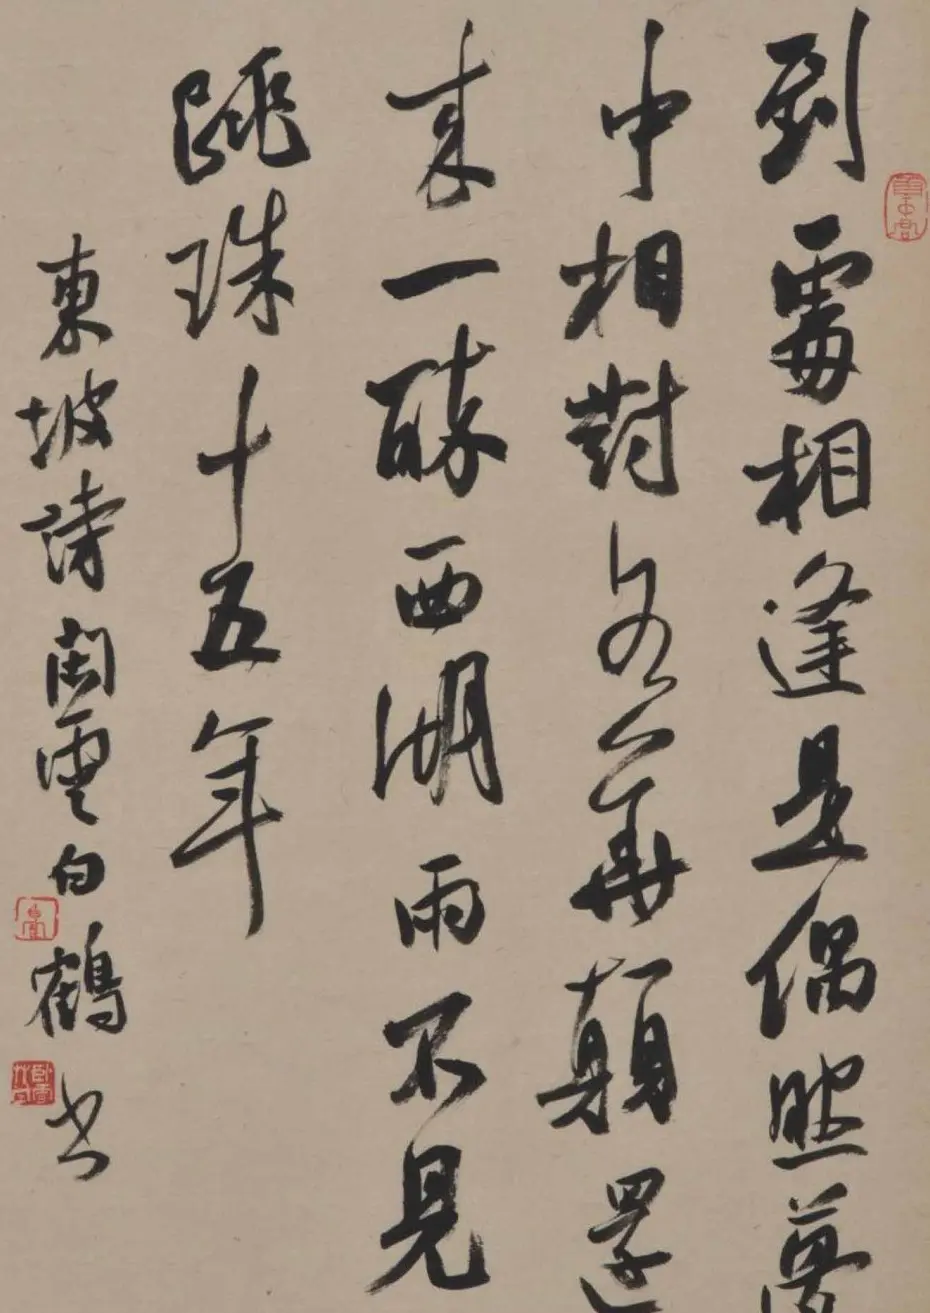 到處相逢是偶然夢
中相對各華顛還
来一醉西湖雨不見
跳珠十五年
東坡詩閑雲白鶴书